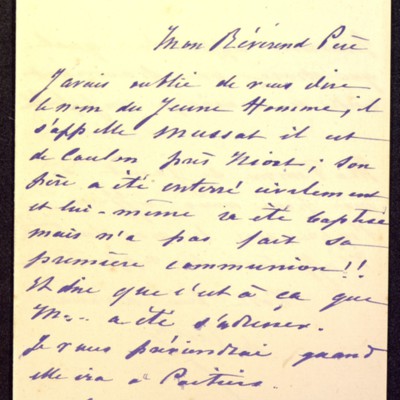 Mon Révérend Père
J'avais oublié de vous dire
le nom du Jeune Homme, il
s'appelle Mussat il est
de Coulon près Niort; son
père a été enterré civilement
et lui-même a été baptisé
mais n'a pas fait sa
première communion!!
Et dire que c'est à ça que
M... a été s'adresser.
Je vous préviendrai quand
elle ira à Poitiers.